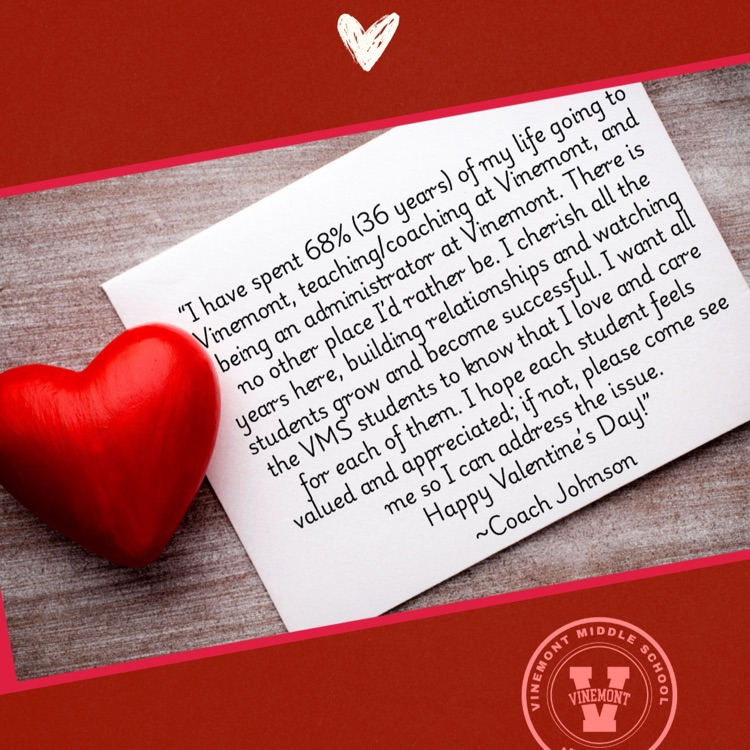 "I have spent 68% (36 years) of my life going to
Vinemont, teaching/coaching at Vinemont, and
being an administrator at Vinemont. There is
no other place I'd rather be. I cherish all the
years here, building relationships and watching
students grow and become successful. I want all
the VMS students to know that I love and care
for each of them. I hope each student feels
valued and appreciated; if not, please come see
me so I can address the issue.
Happy Valentine's Day!"
~Coach Johnson
VINEMONT MIDDLE SCHOOL
V
VINEMONT